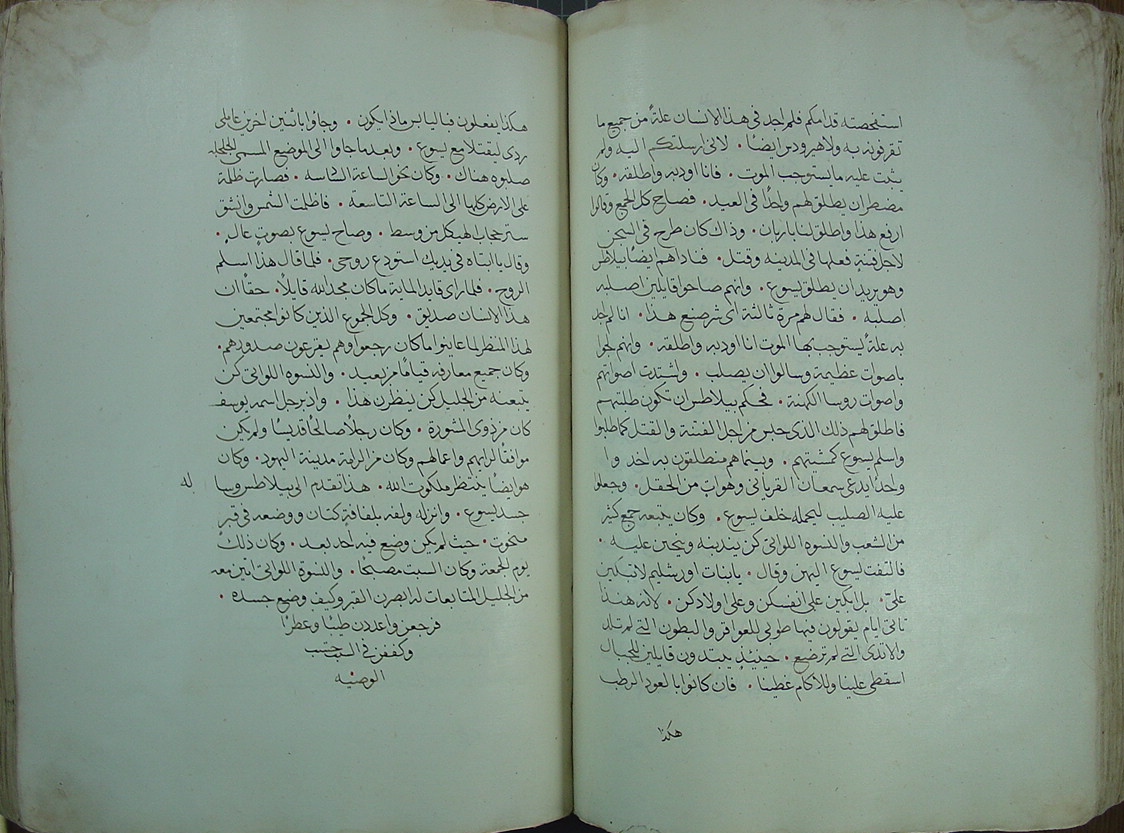 استفحصته قدامكم فلم اجد في هذا الانسان علةً من جميع ما
تقرفونه به ولا هيرودس ايضًا • لانى ارسلتكم اليه ولم
يثبت عليه ما يستوجب الموت • فانا اودبه واطلقه • وكان
مضطر ان يطلق لهم واحدًا في العيد • فصاح كل الجمع وقالوا
ارفع هذا واطلق لنا باربان • وذاك كان طرح في السجن
لاجل فتنةٍ فعلها في المدينه وقتل • فناداهم ايضًا بيلاطس
وهو يريد ان يطلق يسوع • وانهم صاحوا قايلين اصلبه
اصلبه • فقال لهم مرة ثالثة اى شر صنع هذا • انا لم اجد
به علةً يستوجب بها الموت انا اودبه واطلقه • وانهم لجوا
باصوات عظيمة وسالوا ان يصلب • واشتدت اصواتهم
واصوات روسا الكهنة • فحكم بيلاطس ان تكون طلبتهم
فاطلق لهم ذلك الذى حبس من اجل الفتنة والقتل كما طلبوا
واسلم يسوع كمشيتهم • وبينما هم منطلقون به اخدوا
واحدًا يدعى سمعان القرياني وهو اتٍ من الحقل • وجعلوا
عليه الصليب ليحمله خلف يسوع • وكان يتبعه جمع كثير
من الشعب والنسوه اللواتى كن يندبنه وينحن عليه •
فالتفت يسوع اليهن وقال • يا بنات اورشليم لا تبكين
علىّ • بل ابكين على انفسكن وعلى اولادكن • لانه هذا
تاتى ايام يقولون فيها طوبى للعواقر والبطون التى لم تلد
والاثدى التى لم ترضع • حينيذٍ يبتدون قايلين للجبال
اسقطى علينا وللاكام غطينا • فان كانوا بالعود الرطب
هكذا
هكذا يفعلون فباليابس ماذا يكون • وجاوا باثنين اخرين عاملى
ردى ليقتلا مع يسوع • وبعد ما جاوا الى الموضع المسمى الجلجله
صلبوه هناك • وكان نحو الساعة السادسه • فصارت ظلمة
على الارض كلها الى الساعة التاسعة • فاظلمت الشمس وانشق
ستر حجاب الهيكل من وسط • وصاح يسوع بصوتٍ عالٍ •
وقال يا ابتاه في يديك استودع روحى • فلما قال هذا اسلم
الروح • فلما راى قايد الماية ما كان مجد الله قايلاً • حقًا ان
هذا الانسان صديق • وكل الجموع الذين كانوا مجتمعين
لهذا المنظر لما عاينوا ما كان رجعوا وهم يقرعون صدورهم •
وكان جميع معارفه قيامًا من بعيد • والنسوه اللواتى كن
يتبعنه من الجليل كن ينظرن هذا • واذ برجل اسمه يوسف
كان من ذوى المشورة • وكان رجلاً صالحًا قديسًا ولم يكن
موافقًا لرايهم واعمالهم وكان من الرامة مدينة اليهود • وكان
هو ايضًا ينتظر ملكوت الله • هذا تقدم الى بيلاطس وسا
له
جسد يسوع • وانزله ولفه بلفافة كتان ووضعه في قبر
منحوت • حيث لم يكن وضع فيه احد بعد • وكان ذلك
يوم الجمعة وكان السبت مصبحًا • والنسوة اللواتى اتين معه
من الجليل المتابعات له ابصرن القبر وكيف وضع جسده •
فرجعن واعددن طيبًا وعطرًا
وكففن في السبت حسب
الوصيه